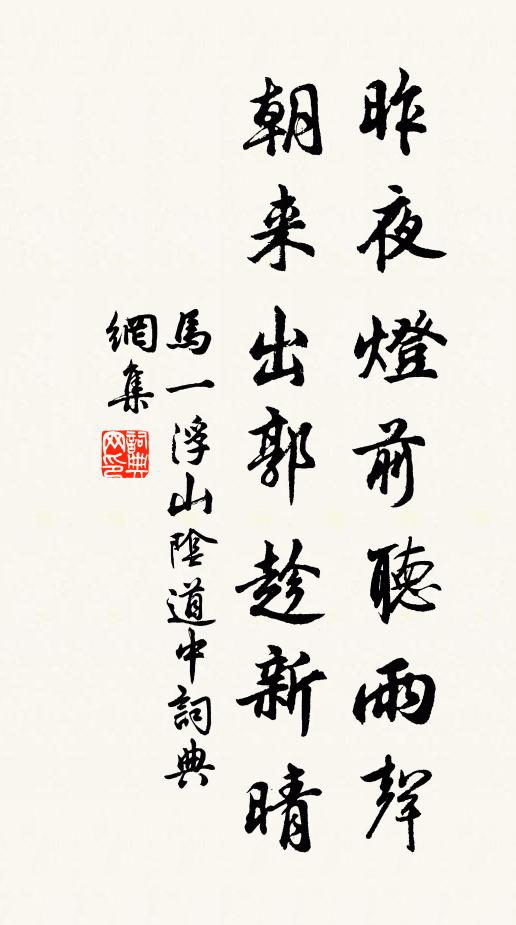 昨夜燈前聽雨聲
朝来出郭趁新晴
馬一浮山陰道中詞典
網集
詞典
网印